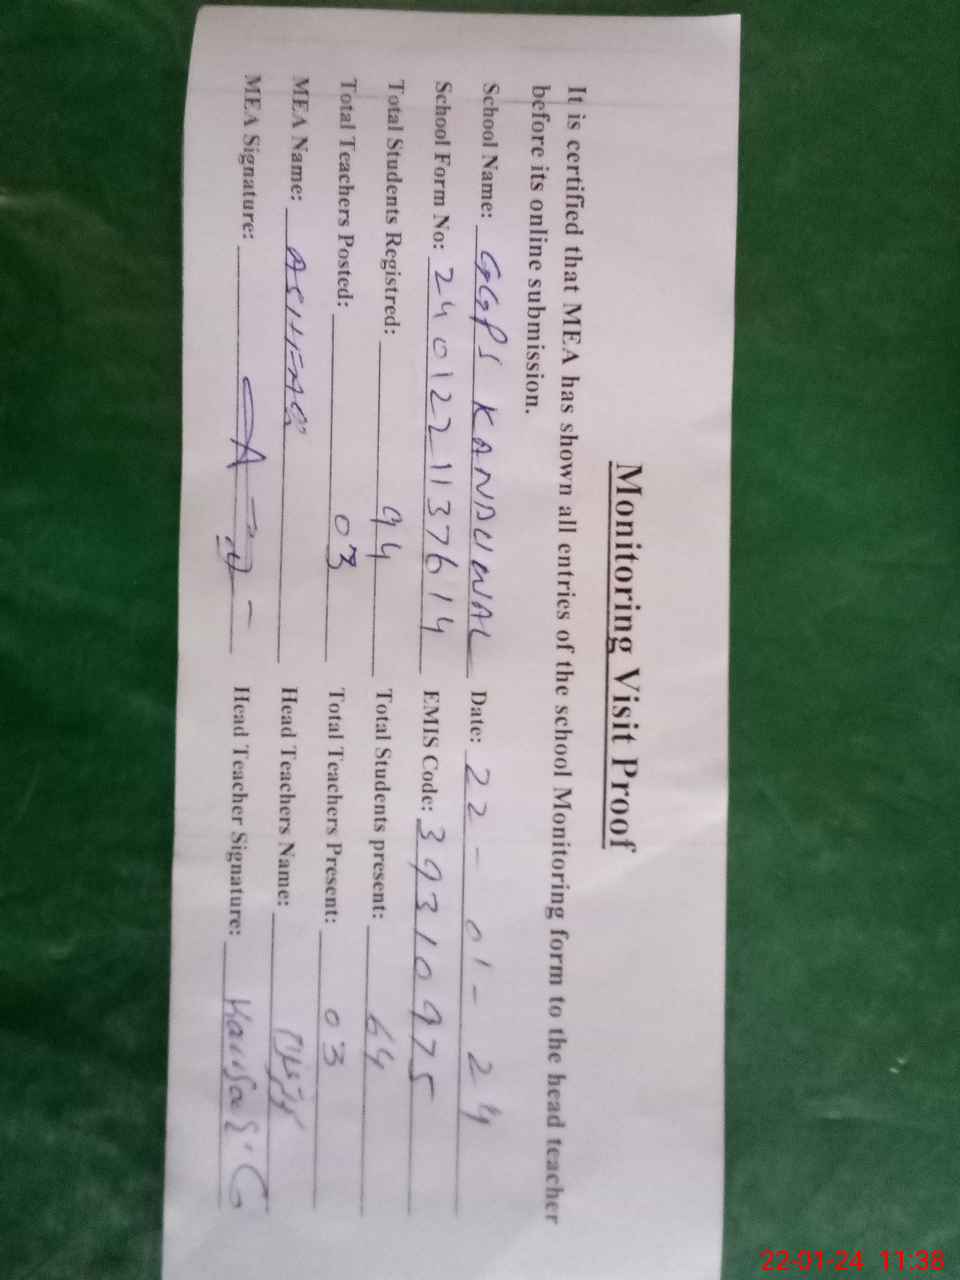 Monitoring Visit Proof
It is certified that MEA has shown all entries of the school Monitoring form to the head teacher
before its online submission.
School Name: GGPS KANDUWAL Date: 22-01-24
School Form No: 2401221137614 EMIS Code: 39310975
Total Students Registred: 94 Total Students present: 64
Total Teachers Posted: 03 Total Teachers Present: 03
MEA Name: ASHFAQ Head Teachers Name:
MEA Signature: Head Teacher Signature:
22-01-24 11:38